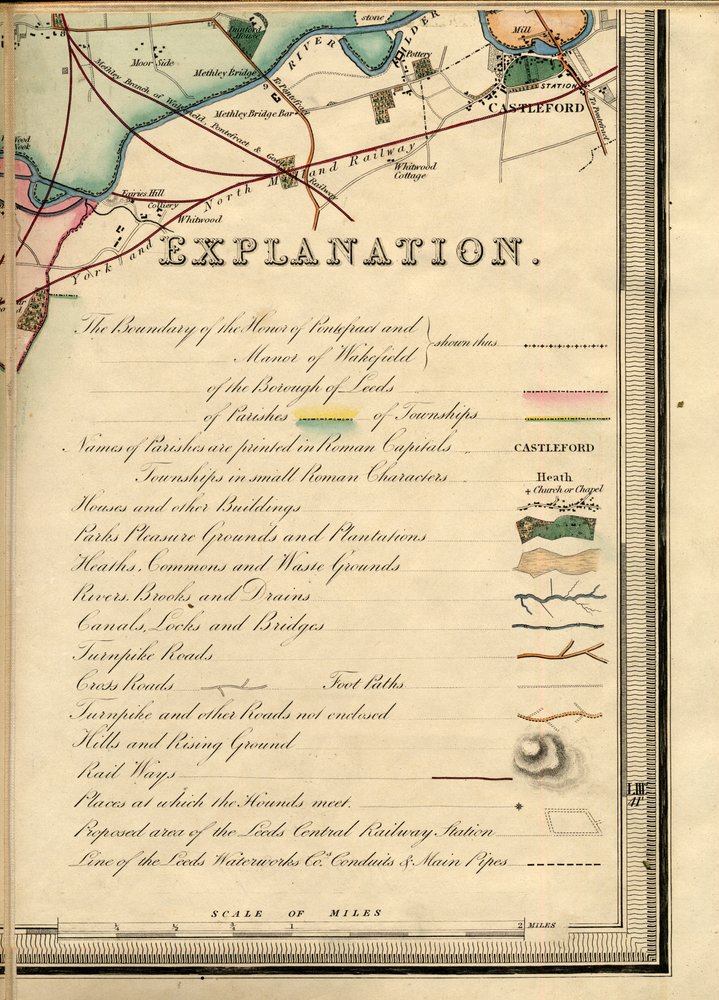 8
stone
RIVER
CALDER
Mill
Moor Side
Pottery
Methley Bridge
9
To Pontefract
STATION
Methley Branch of Wakefield, Pontefract & Goole Railway
Methley Bridge Bar
CASTLEFORD
To Pontefract
York and North Midland Railway
Whitwood
Cottage
Fairies Hill
Colliery
Whitwood
EXPLANATION.
The Boundary of the Honor of Pontefract and
Manor of Wakefield } shown thus
of the Borough of Leeds
of Parishes of Townships
Names of Parishes are printed in Roman Capitals CASTLEFORD
Townships in small Roman Characters Heath
+ Church or Chapel
Houses and other Buildings
Parks Pleasure Grounds and Plantations
Heaths, Commons and Waste Grounds
Rivers, Brooks and Drains
Canals, Locks and Bridges
Turnpike Roads
Cross Roads Foot Paths
Turnpike and other Roads not enclosed
Hills and Rising Ground
Rail Ways
Places at which the Hounds meet
Proposed area of the Leeds Central Railway Station
Line of the Leeds Waterworks Co.s Conduits & Main Pipes
41'
SCALE OF MILES
¼ ½ ¾ 1 2 MILES